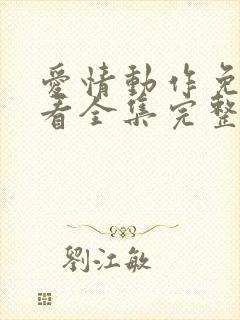 愛情動作免
看全集完整
劉江敏